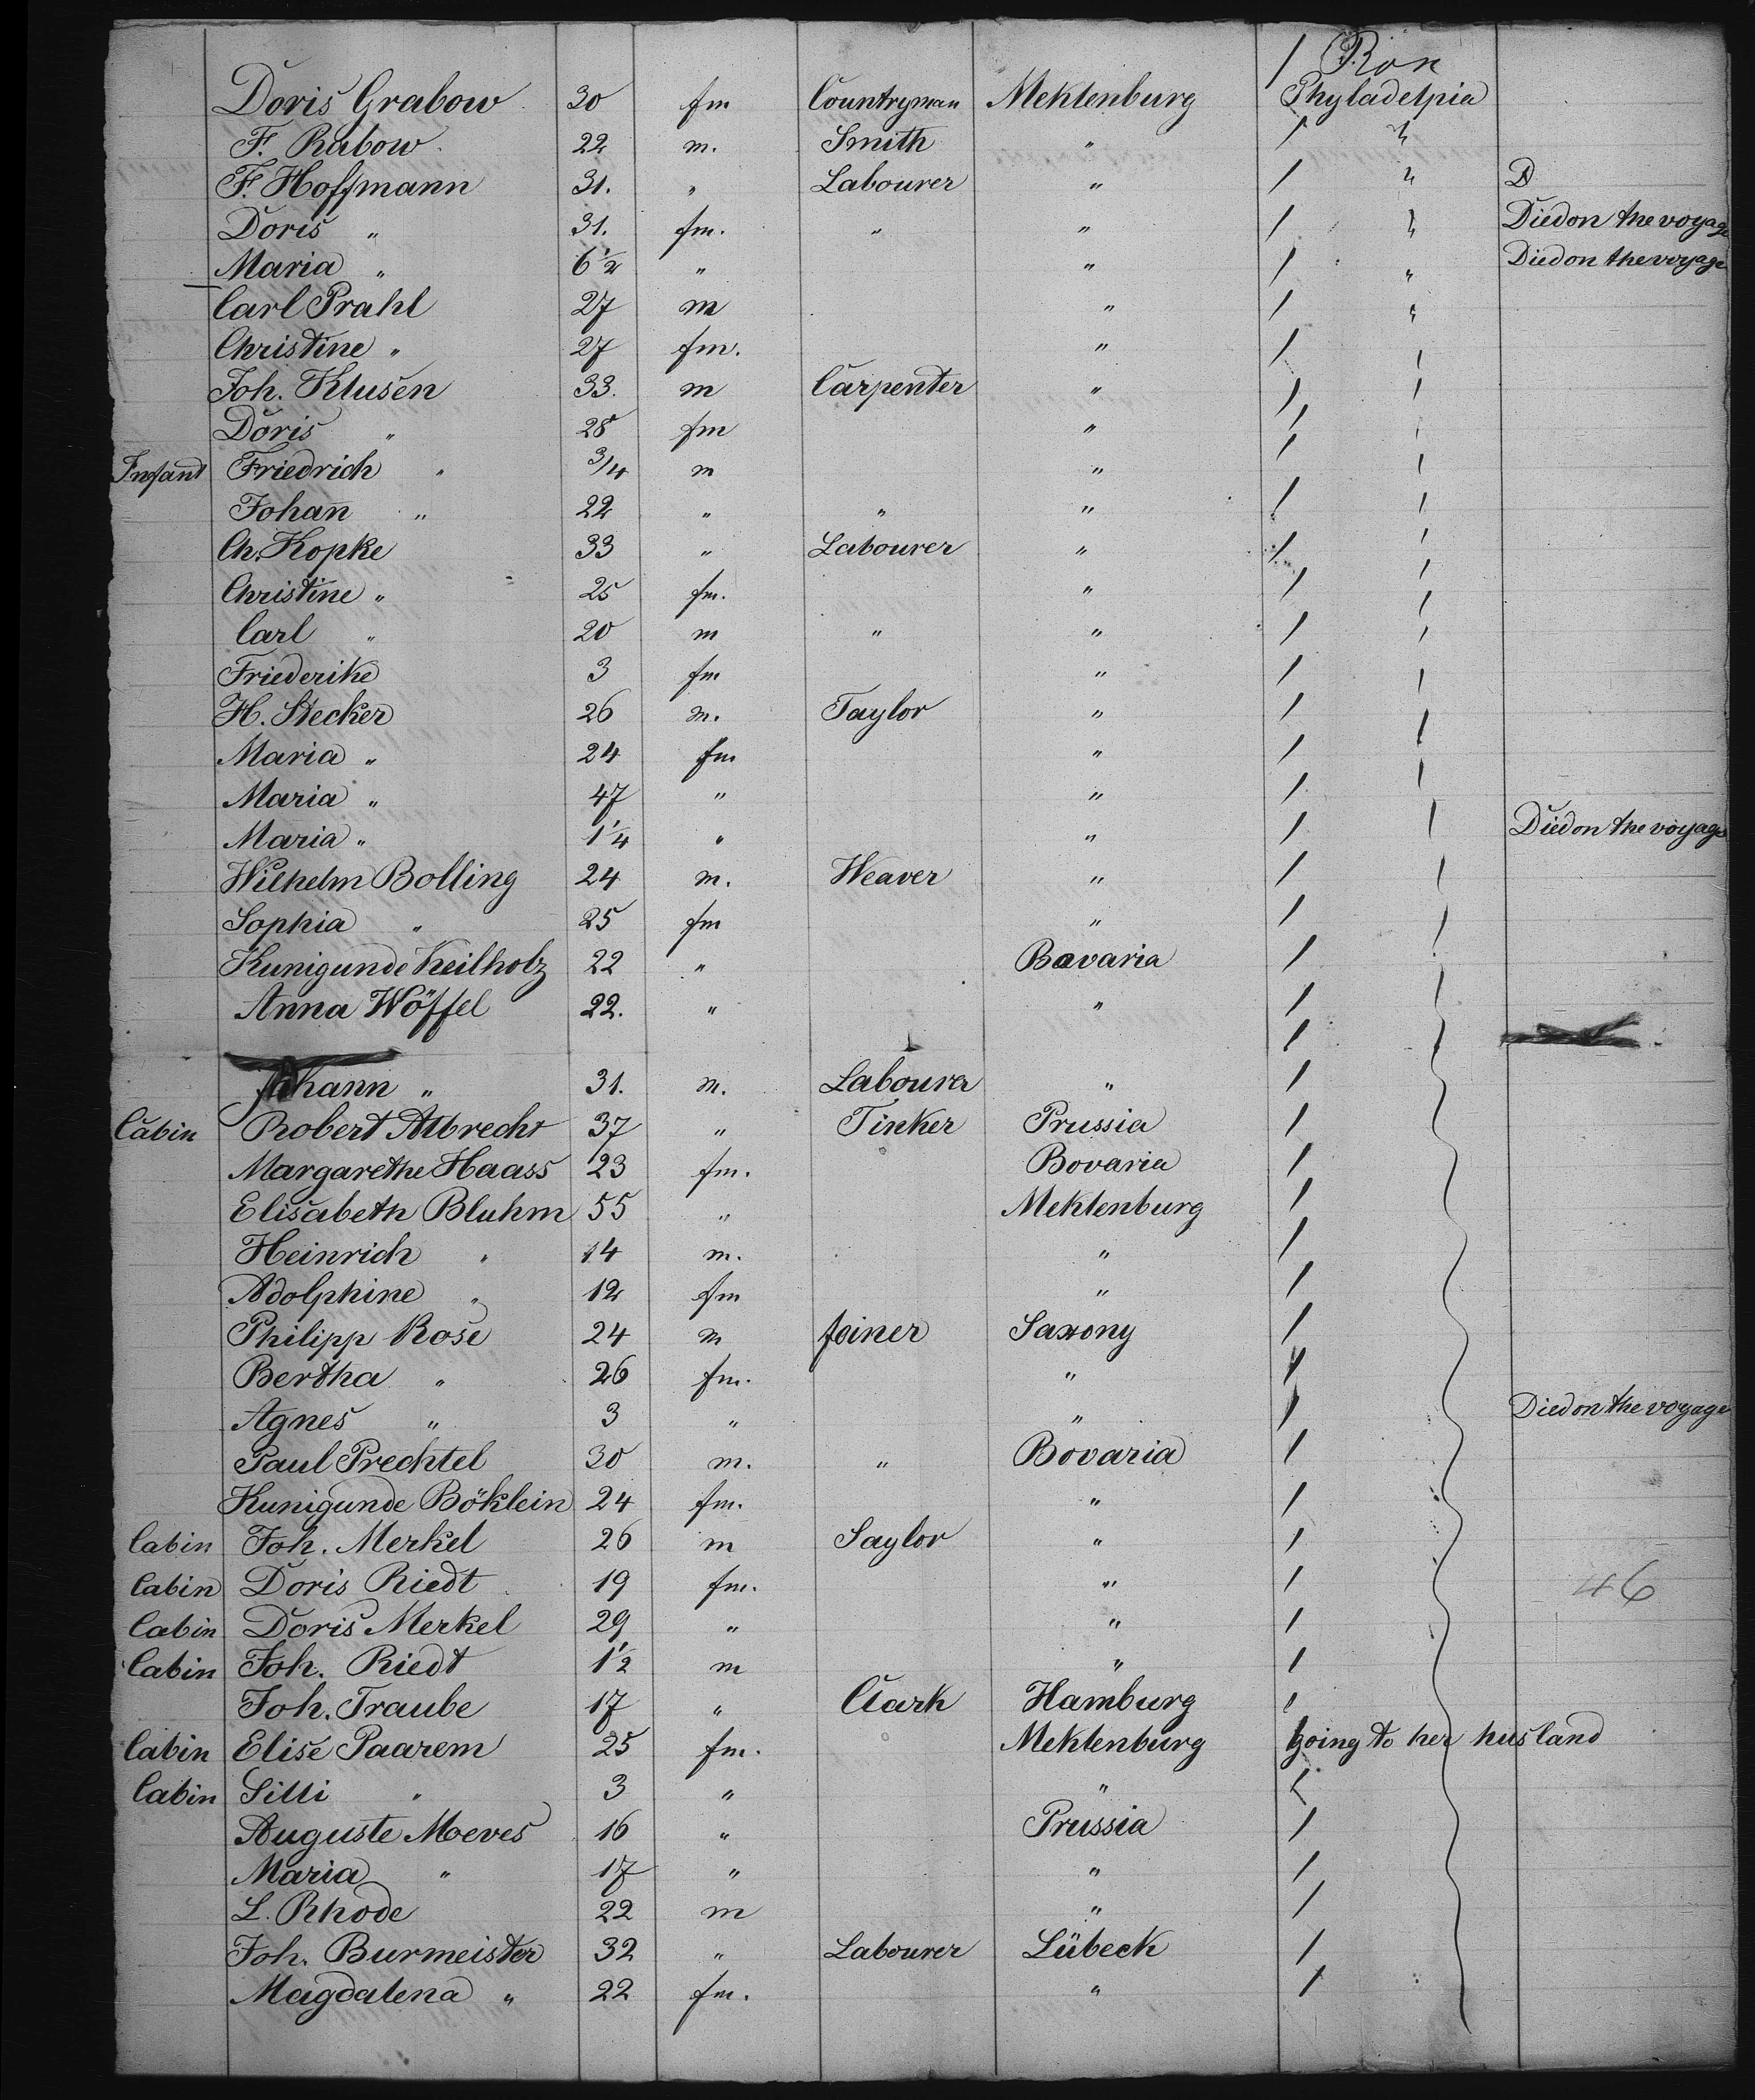 / Rox
Doris Grabow 30 fm Countryman Meklenburg Phyladelpia
F. Rabow 22 m. Smith " / "
F. Hoffmann 31. " Labourer " / " D
Doris " 31. fm. " " / " Died on the voyage
Maria " 6 1/2 " " / " Died on the voyage
Carl Prahl 27 m " / "
Christine " 27 fm. " / /
Joh. Klusen 33. m Carpenter " / /
Doris " 28 fm " / /
Infant Friedrich " 3/4 m " / /
Johan̄ " 22 " " " / /
Ch. Kopke 33 " Labourer " / /
Christine " 25 fm. " / /
Carl " 20 m " " / /
Friederike 3 fm " / /
H. Stecker 26 m. Taylor " / /
Maria " 24 fm " / /
Maria " 47 " " / /
Maria " 1 1/4 " " / / Died on the voyage
Wilhelm Bolling 24 m. Weaver " / /
Sophia " 25 fm " / /
Kunigunde Keilholz 22 " Bavaria / /
Anna Wöffel 22. " " / /
Johann " 31. m. Labourer " /
Cabin Robert Albrecht 37 " Tinker Prussia /
Margarethe Haass 23 fm. Bovaria /
Elisabeth Bluhm 55 " Meklenburg /
Heinrich " 14 m. " /
Adolphine " 12 fm " /
Philipp Rose 24 m Joiner Saxony /
Bertha " 26 fm. " /
Agnes " 3 " " / Died on the voyage
Paul Prechtel 30 m. " Bovaria /
Kunigunde Böklein 24 fm. " /
Cabin Joh. Merkel 26 m Saylor " /
Cabin Doris Riedt 19 fm. " / 46
Cabin Doris Merkel 29 " " /
Cabin Joh. Riedt 1 1/2 m " /
Joh. Traube 17 " Clark Hamburg /
Cabin Elise Paarem 25 fm. Meklenburg going to her husband
Cabin Silli " 3 " " /
Auguste Moeves 16 " Prussia /
Maria " 17 " " /
L. Rhode 22 m " /
Joh. Burmeister 32 " Labourer Lübeck /
Magdalena " 22 fm. " /